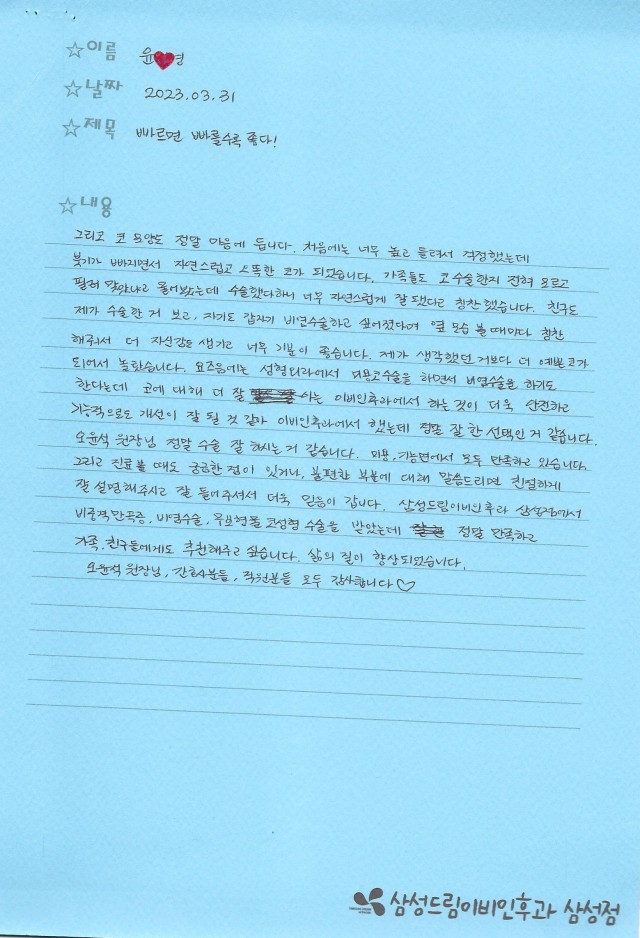 ☆이름 윤♥영
☆날짜 2023.03.31
☆제목 빠르면 빠를수록 좋다!
☆내용
그리고 코 모양도 정말 마음에 듭니다. 처음에는 너무 높고 들려서 걱정했는데
붓기가 빠지면서 자연스럽고 오똑한 코가 되었습니다. 가족들도 코수술한지 전혀 모르고
필러 맞았냐고 물어봤는데 수술했다하니 너무 자연스럽게 잘 됐다고 칭찬했습니다. 친구도
제가 수술한 거 보고, 자기도 갑자기 비염수술하고 싶어졌다며 옆 모습 볼 때마다 칭찬
해줘서 더 자신감도 생기고 너무 기분이 좋습니다. 제가 생각했던 거보다 더 예쁜코가
되어서 놀랐습니다. 요즈음에는 성형외과에서 미용코수술을 하면서 비염수술을 하기도
한다는데 코에 대해 더 잘 아는 이비인후과에서 하는것이 더욱 안전하고
기능적으로도 개선이 잘 될 것 같아 이비인후과에서 했는데 정말 잘 한 선택인 거 같습니다.
오윤석 원장님 정말 수술 잘 하시는 거 같습니다. 미용, 기능면에서 모두 만족하고 있습니다.
그리고 진료 볼 때도 궁금한 점이 있거나, 불편한 부분에 대해 말씀드리면 친절하게
잘 설명해주시고 잘 들어주셔서 더욱 믿음이 갑니다. 삼성드림이비인후과 삼성점에서
비중격만곡증, 비염수술, 무보형물 코성형 수술을 받았는데 정말 만족하고
가족, 친구들에게도 추천해주고 싶습니다. 삶의 질이 향상되었습니다.
오윤석 원장님, 간호사분들, 직원분들 모두 감사합니다♡
삼성드림이비인후과 삼성점